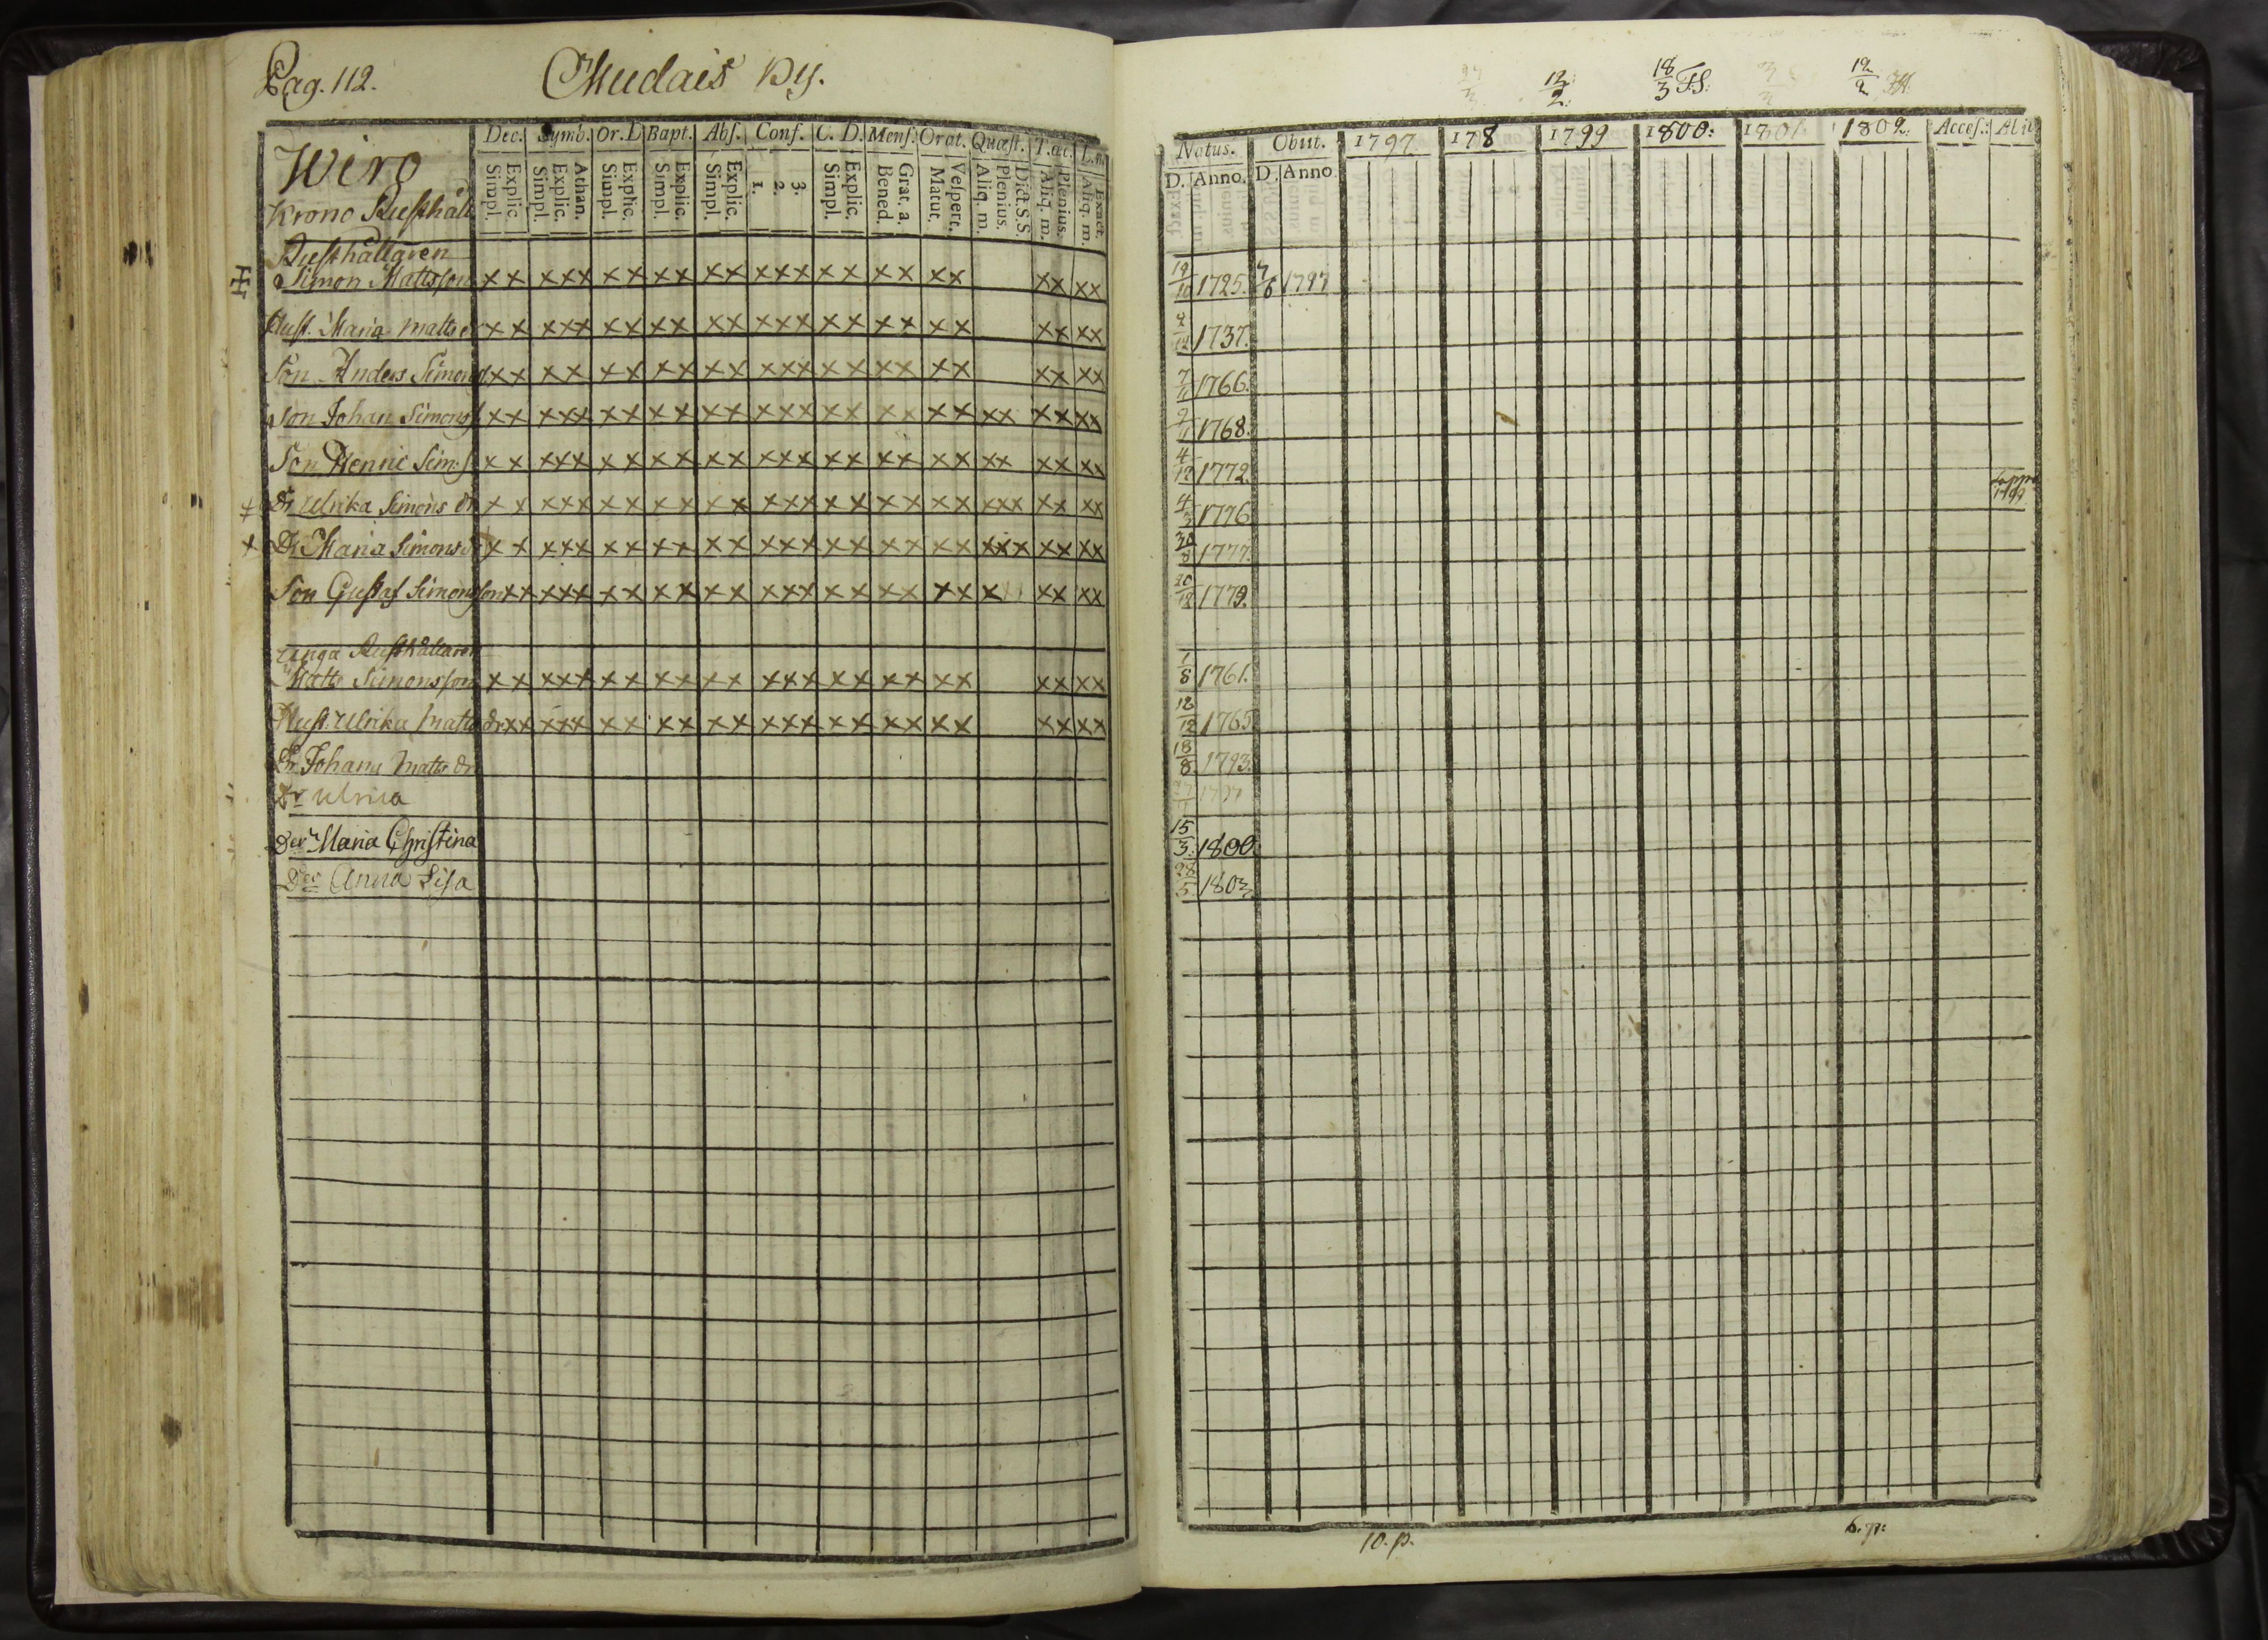 Pag. 112. Mudais By.
Wiro
Krono Rusthåll
Dec. Symb. Or. D Bapt. Abs. Conf. C. D. Mens. Orat. Quæst. T. æc.
Simpl. Explic. Simpl. Explic. Athan. Simpl. Explic. Simpl. Explic. Simpl. Explic. 1. 2. 3. Simpl. Explic. Bened. Grat. a. Matut. Vespert. Aliq. m. Plenius. Dict. S.S. Aliq. m. Plenius. Aliq. m. Exact.
Rusthållaren
Simon Mattsson xx xxx xx xx xx xxx xx xx xx xx xx
Hust. Maria Matts xx xxx xx xx xx xxx xx xx xx xx xx
Son Anders Simons xx xx xx xx xx xxx xx xx xx xx xx
Son Johan Simons xx xxx xx xx xx xxx xx xx xx xx xx xx
Son Henric Sim. xx xxx xx xx xx xxx xx xx xx xx xx xx
Dr Ulrika Simons dr xx xxx xx xx xx xxx xx xx xx xxx xx xx
Dr Maria Simons d xx xxx xx xx xx xxx xx xx xx xxx xx xx
Son Gustaf Simonsson xx xxx xx xx xx xxx xx xx xx x xx xx
unga Rusthållaren
Matts Simonsson xx xxx xx xx xx xxx xx xx xx xx xx
Hust. Ulrika Matts dr xx xxx xx xx xx xxx xx xx xx xx xx
Dr Johana Matts dr
Dr Ulrica
Der Maria Christina
Der Anna Lisa
12/2. 18/3 F.S. 12/2
Natus. Obiit. 1797 178 1799 1800: 1801 1802. Acces. Abit
D. Anno. D. Anno
19/10 1725. 7/6 1797
1737.
1766.
1768.
4/12 1772.
4/3 1776
30/8 1777.
20/12 1779.
1/8 1761.
18/12 1765
18/8 1793.
1797
15/3. 1800.
28/5 1803.
10. p. 6. p: